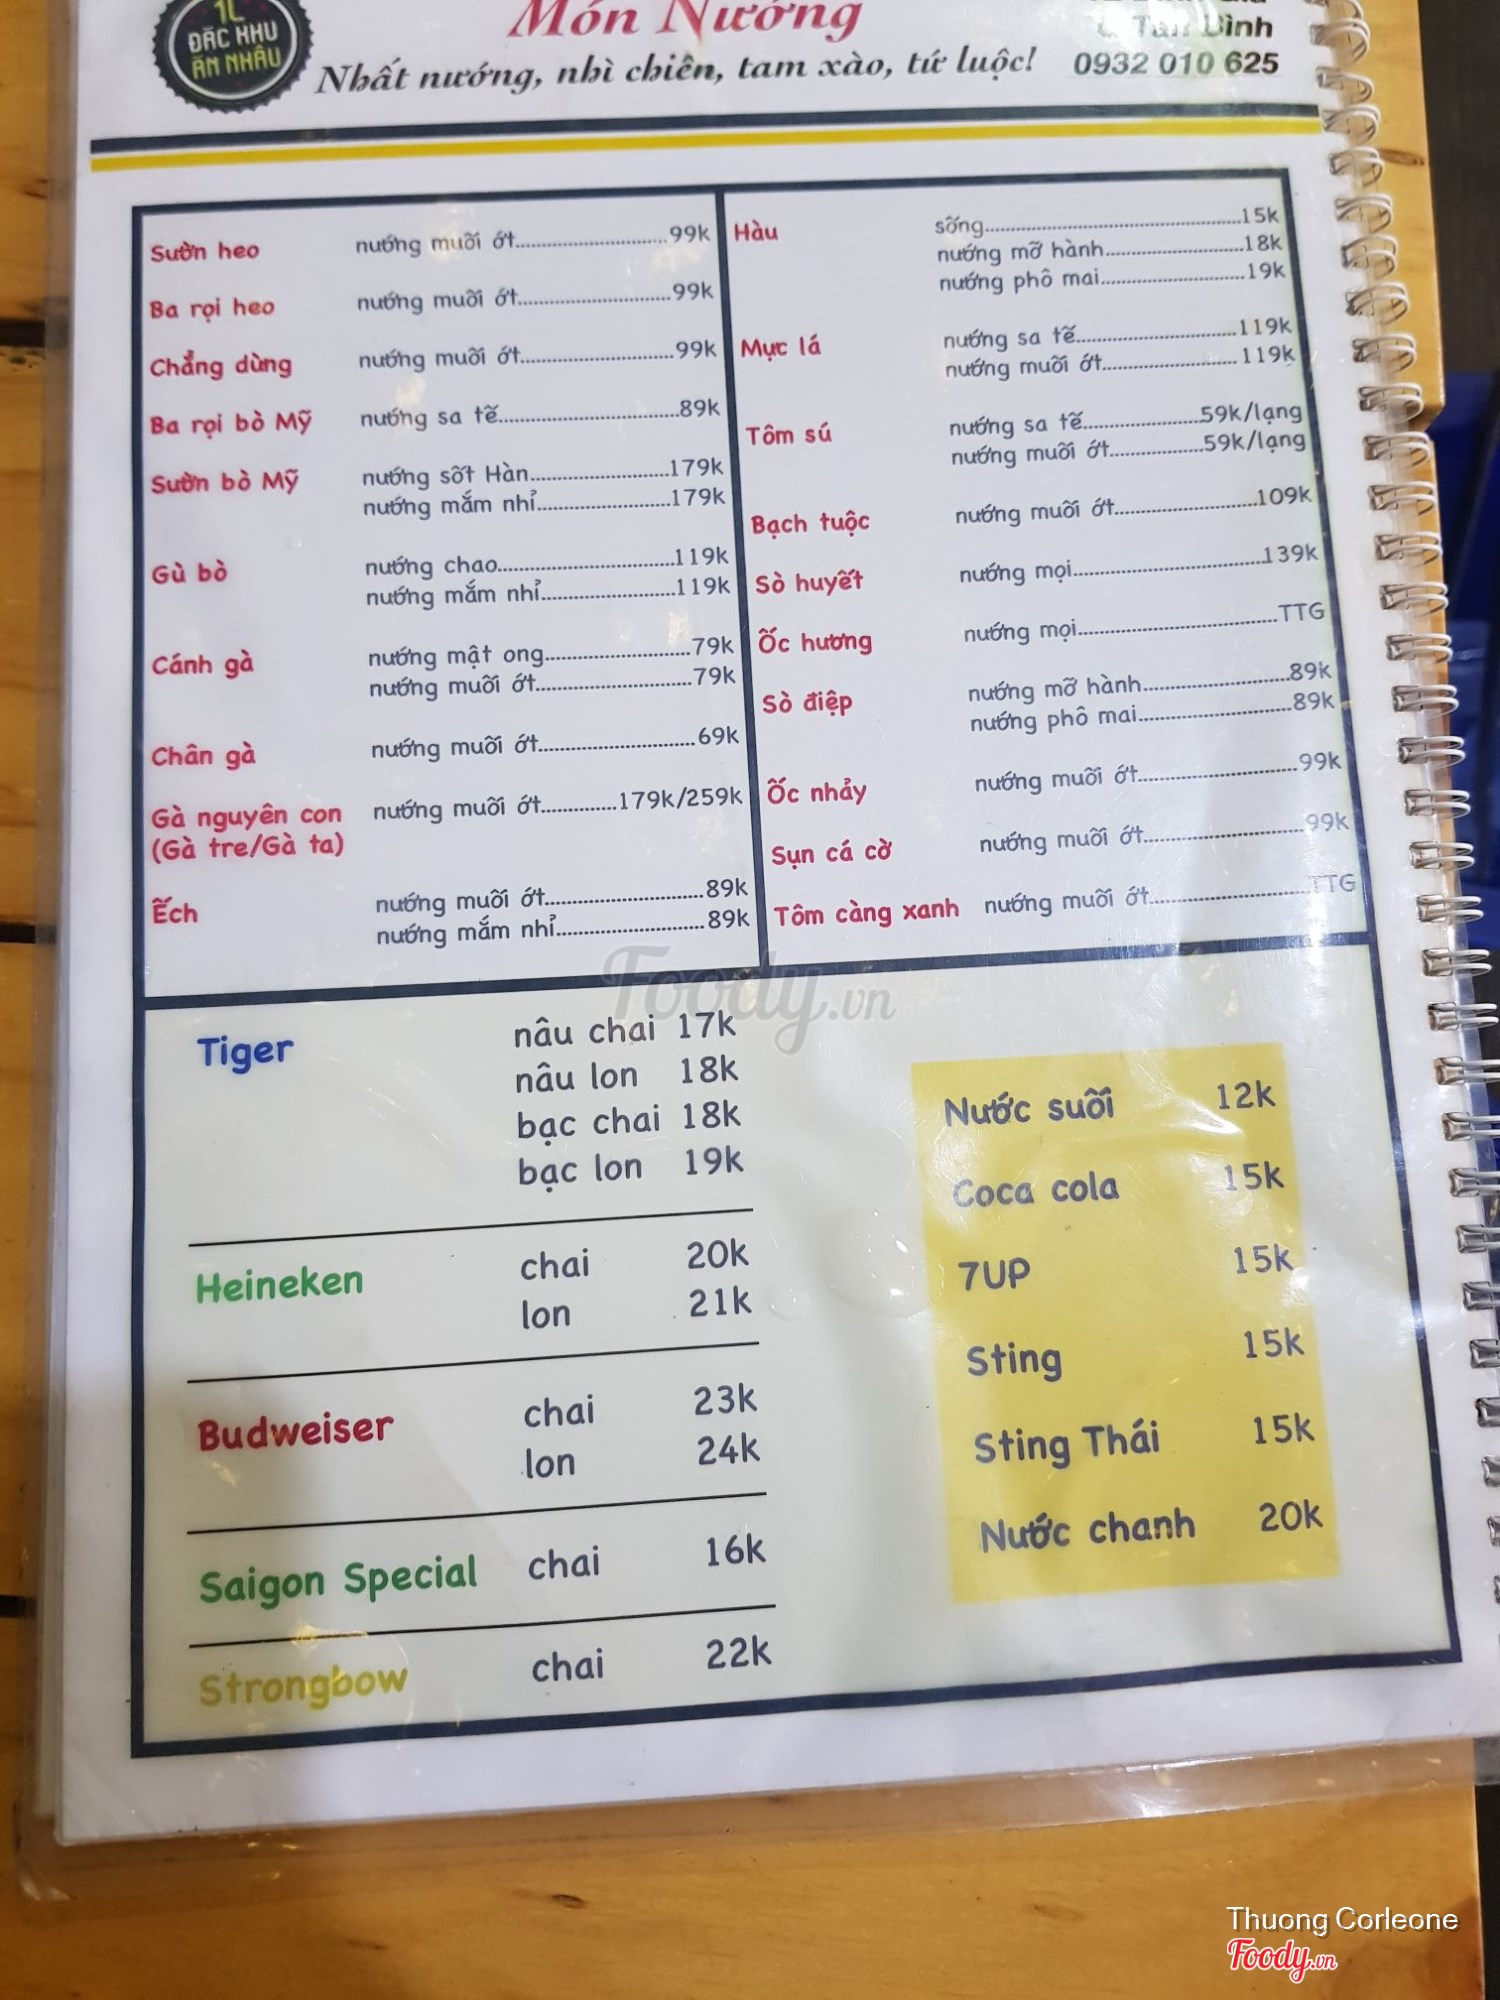 1L
ĐẶC KHU
ĂN NHẬU
Món Nướng
Nhất nướng, nhì chiên, tam xào, tứ luộc!
Tân Bình
0932 010 625
Sườn heo nướng muối ớt 99k
Ba rọi heo nướng muối ớt 99k
Chẳng dừng nướng muối ớt 99k
Ba rọi bò Mỹ nướng sa tế 89k
Sườn bò Mỹ nướng sốt Hàn 179k
nướng mắm nhỉ 179k
Gù bò nướng chao 119k
nướng mắm nhỉ 119k
Cánh gà nướng mật ong 79k
nướng muối ớt 79k
Chân gà nướng muối ớt 69k
Gà nguyên con nướng muối ớt 179k/259k
(Gà tre/Gà ta)
Ếch nướng muối ớt 89k
nướng mắm nhỉ 89k
Hàu sống 15k
nướng mỡ hành 18k
nướng phô mai 19k
Mực lá nướng sa tế 119k
nướng muối ớt 119k
Tôm sú nướng sa tế 59k/lạng
nướng muối ớt 59k/lạng
Bạch tuộc nướng muối ớt 109k
Sò huyết nướng mọi 139k
Ốc hương nướng mọi TTG
Sò điệp nướng mỡ hành 89k
nướng phô mai 89k
Ốc nhảy nướng muối ớt 99k
Sụn cá cờ nướng muối ớt 99k
Tôm càng xanh nướng muối ớt TTG
Foody.vn
Tiger nâu chai 17k
nâu lon 18k
bạc chai 18k
bạc lon 19k
Heineken chai 20k
lon 21k
Budweiser chai 23k
lon 24k
Saigon Special chai 16k
Strongbow chai 22k
Nước suối 12k
Coca cola 15k
7UP 15k
Sting 15k
Sting Thái 15k
Nước chanh 20k
Thuong Corleone
Foody.vn